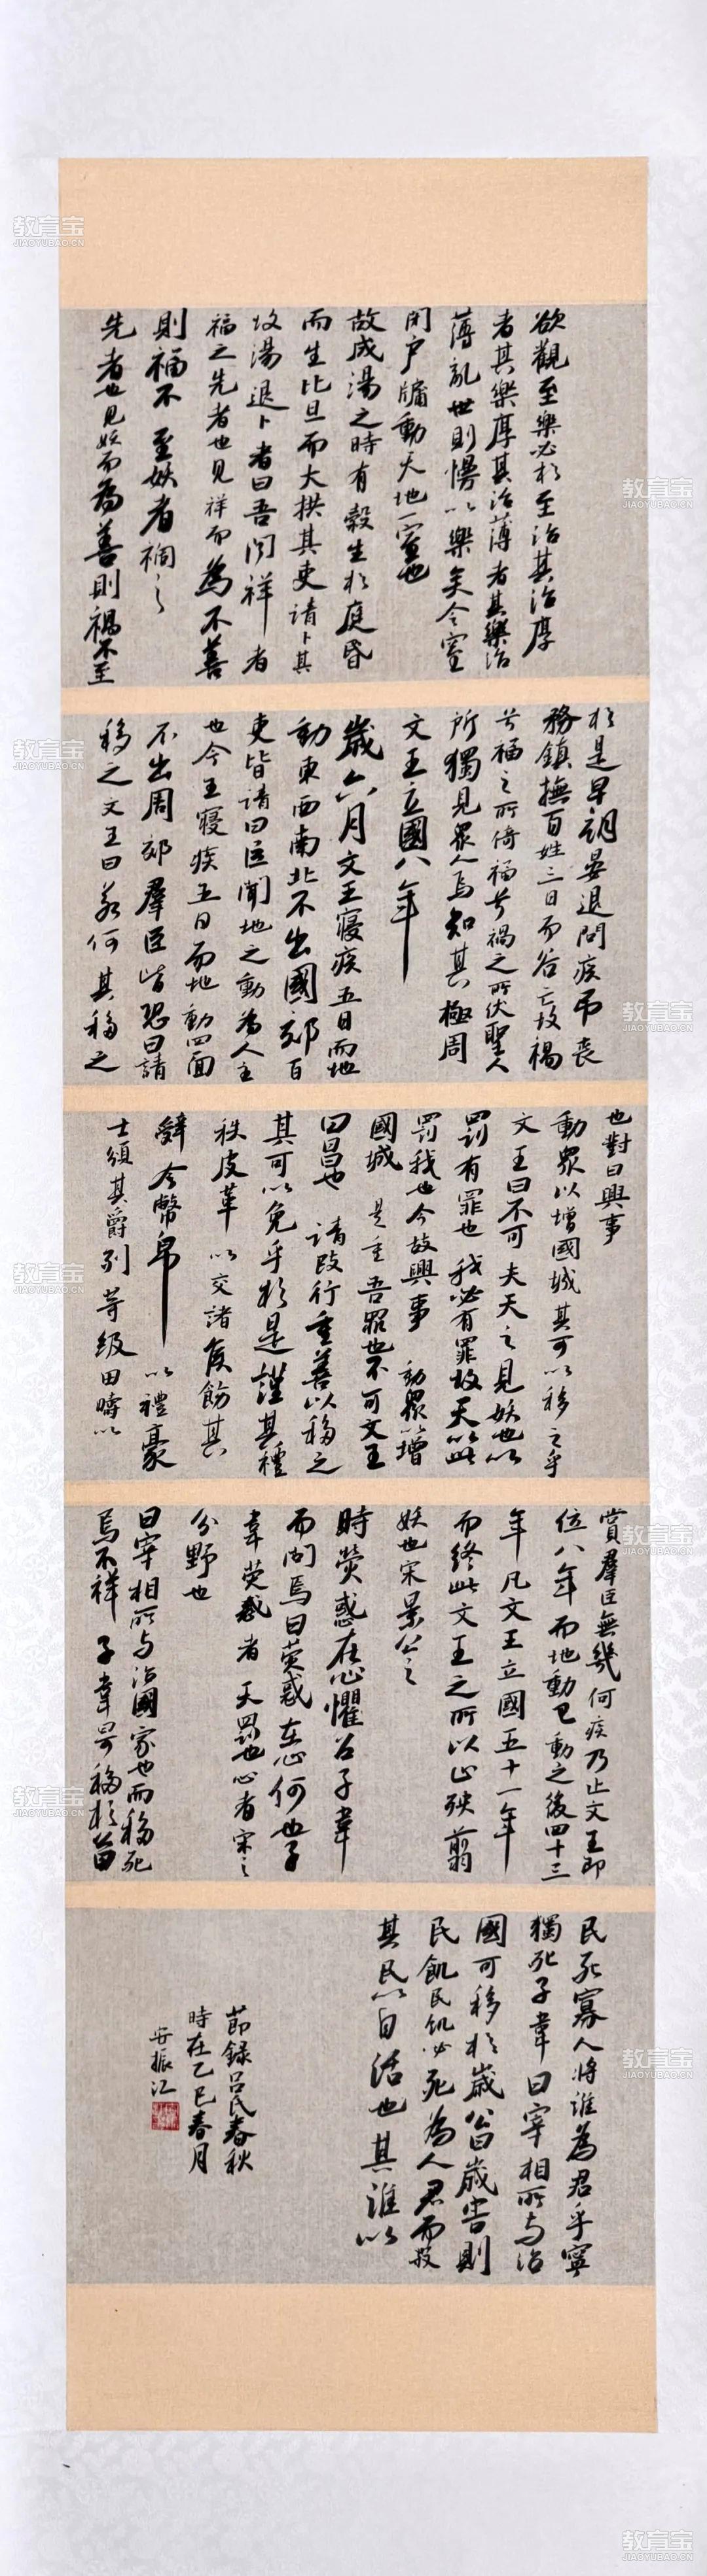 欲觀至樂必於至治其治厚
者其樂厚其治薄者其樂治
薄亂世則慢以樂矣今室
閉戶牖動天地一室也
故成湯之時有穀生於庭昏
而生比旦而大拱其吏請卜其
故湯退卜者曰吾聞祥者
福之先者也見祥而為不善
則福不至妖者禍之
先者也見妖而為善則禍不至
於是早朝晏退問疾弔喪
務鎮撫百姓三日而谷亡故禍
兮福之所倚福兮禍之所伏聖人
所獨見眾人焉知其極周
文王立國八年
歲六月文王寢疾五日而地
動東西南北不出國郊百
吏皆請曰臣聞地之動為人主
也今王寢疾五日而地動四面
不出周郊羣臣皆恐曰請
移之文王曰若何其移之
也對曰興事
動眾以增國城其可以移之乎
文王曰不可夫天之見妖也以
罰有罪也我必有罪故天以此
罰我也今故興事動眾以增
國城是重吾罪也不可文王
曰昌也請改行重善以移之
其可以免乎於是謹其禮
秩皮革以交諸侯飭其
辭令幣帛以禮豪
士頒其爵列等級田疇以
賞羣臣無幾何疾乃止文王即
位八年而地動已動之後四十三
年凡文王立國五十一年
而終此文王之所以止殃翦
妖也宋景公之
時熒惑在心懼召子韋
而問焉曰熒惑在心何也子
韋熒惑者天罰也心者宋之
分野也
曰宰相所與治國家也而移死
焉不祥子韋曰可移於
民死寡人將誰為君乎寧
獨死子韋曰宰相所與治
國可移於歲公曰歲害則
民飢民飢必死為人君而殺
其民以自活也其誰以
節錄呂氏春秋
時在乙巳春月
安振江
教育宝
JIAOYUBAO.CN